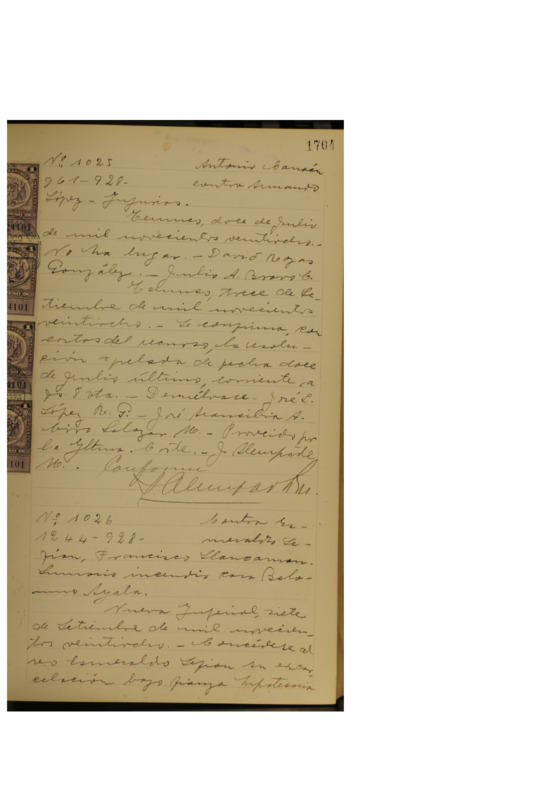 1704
Nº 1025 Antonio
961-928- contra Armando
López - Injurias.
Temuco, doce de Julio
de mil novecientos veintiocho.-
No ha lugar. - David Rozas
González. - Julio A. Bravo C.
Temuco, trece de Se-
tiembre de mil novecientos
veintiocho. - Se confirma, con
costas del recurso, la resolu-
ción apelada de fecha doce
de Julio último, corriente a
fjs 8 vta. - Devuélvase. José L.
López R. P. - José Arancibia A.
Salazar M. - Proveido por
la Iltma. Corte. - J.
M. Conforme
Nº 1026 Contra Es-
1244-928- meraldo
Francisco
Sumario incendio casa
Ayala.
Nueva Imperial, siete
de Setiembre de mil novecien-
tos veintiocho. - Concédese al
reo Esmeraldo su excar-
celación bajo fianza hipotecaria